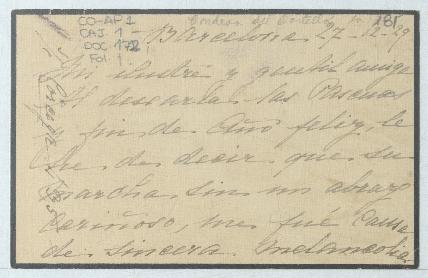 CO-AP1
CAJ. 1
DOC 172
Fol. 1
181
Barcelona 27-12-29
Mi ilustre y gentil amiga
Al desearla las Pascuas
y fin de Año feliz, le
he de decir que su
marcha, sin un abrazo
cariñoso, me fué causa
de sincera melancolia